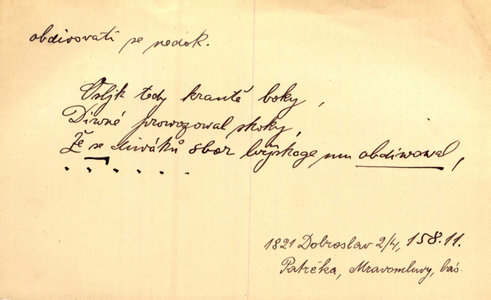 obdivovati se nedok.
Oslík tedy kroutě boky,
Diwné prowozowal skoky,
Že se diwáků sbor lvýskage mu obdiwowal,
. . . . . .
1821 Dobroslav 2/4, 158.11.
Patrčka, Mravomluvy, báś